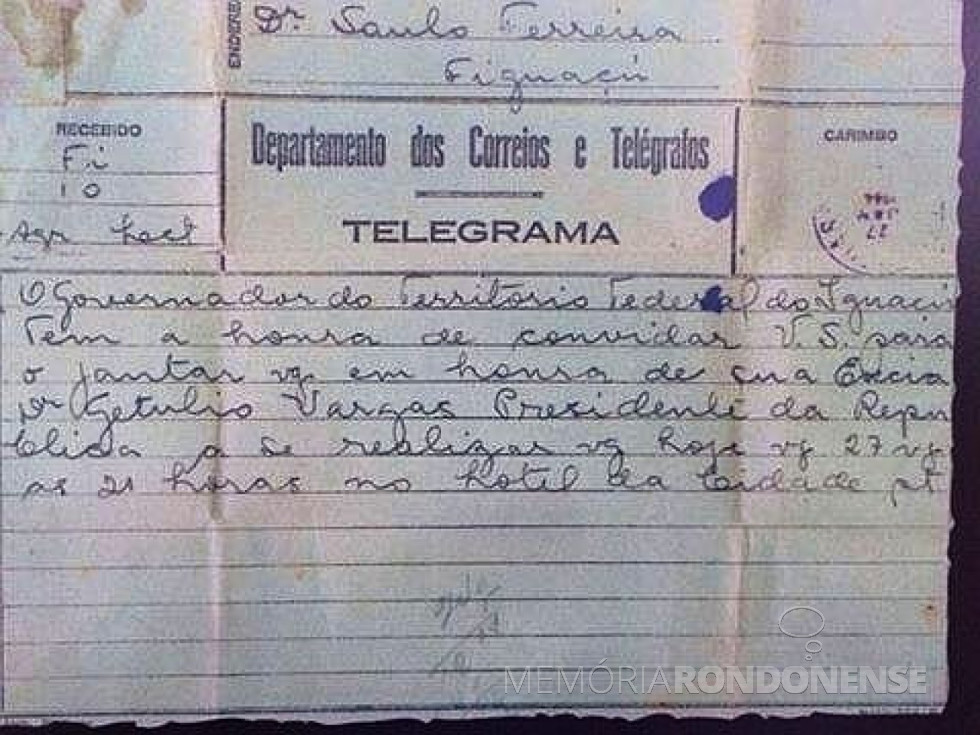 Dr. Saulo Ferreira
ENDERE
Figuaçú
RECEBIDO
Fi
10
Departamento dos Correios e Telégrafos
TELEGRAMA
CARIMBO
27
JAN
O Governador do Território Federal do Iguaçú
Tem a honra de convidar V. S. para
o jantar vg em honra de sua Excia
Dr Getulio Vargas Presidente da Repu
blica a se realizar vg hoje vg 27 vg
as 21 horas no hotel da cidade pt
MEMÓRIARONDONENSE